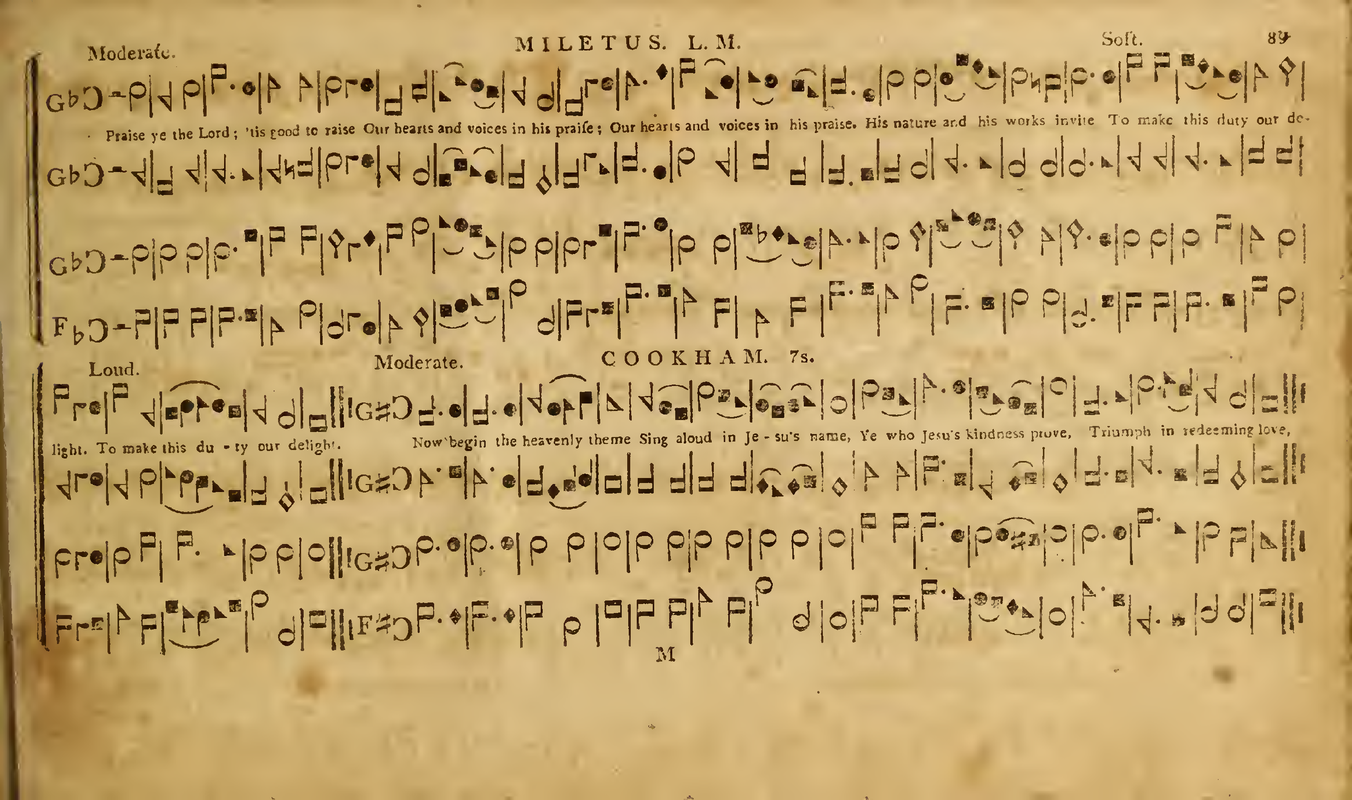 Moderate. MILETUS. L. M. Soft. 89
G♭
Praise ye the Lord; 'tis good to raise Our hearts and voices in his praise; Our hearts and voices in his praise. His nature and his works invite To make this duty our de-
G♭
G♭
F♭
Loud. Moderate. COOKHAM. 7s.
G♯
light. To make this du - ty our delight. Now begin the heavenly theme Sing aloud in Je - su's name, Ye who Jesu's kindness prove, Triumph in redeeming love,
G♯
G♯
F♯
M